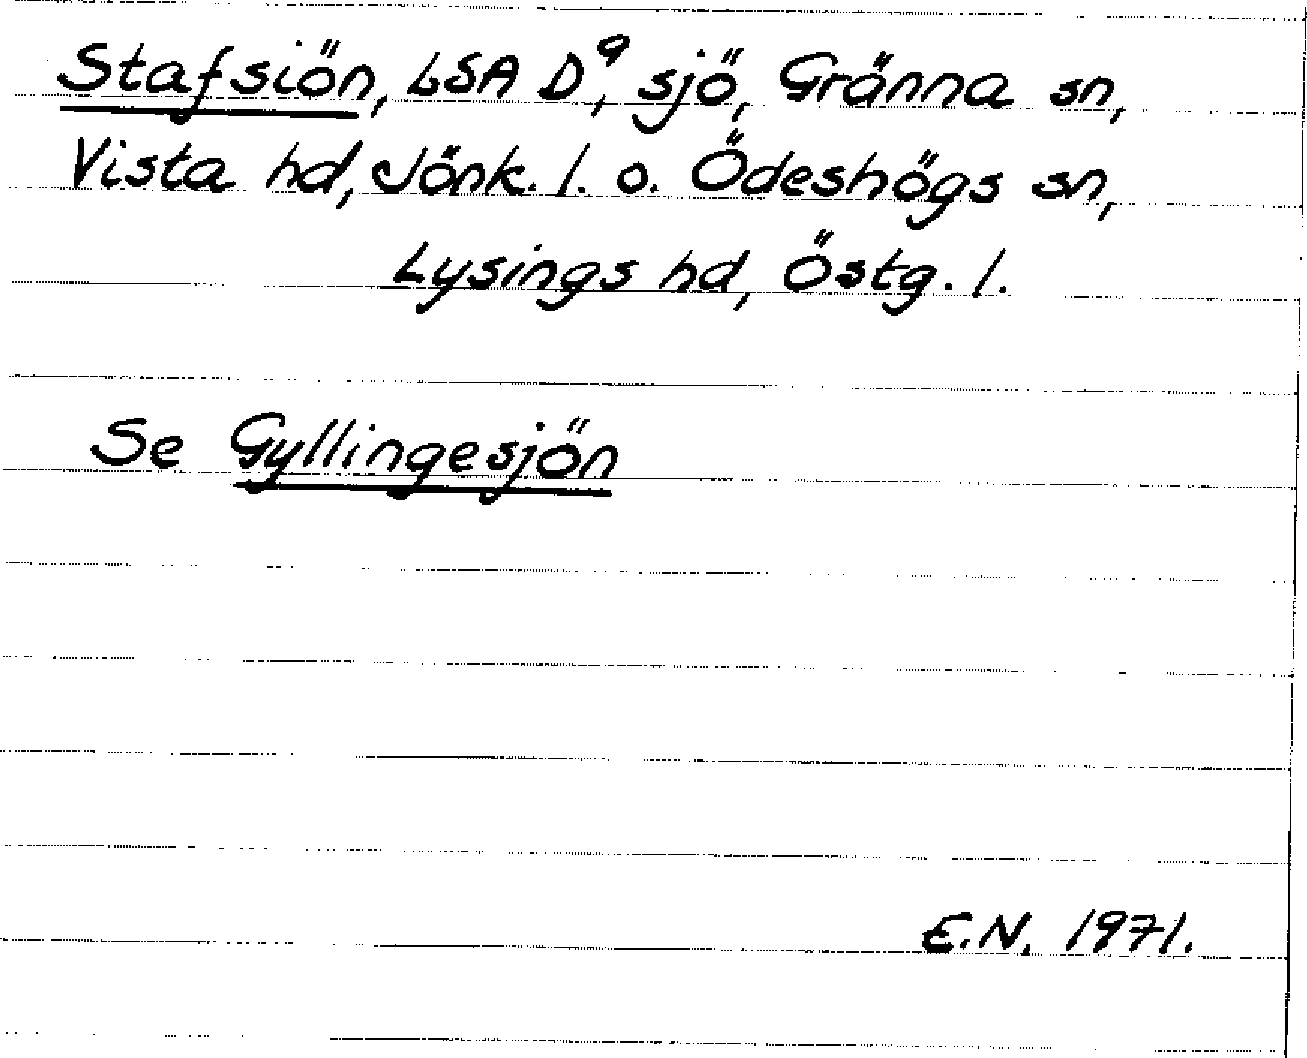 Stafsiön, LSA D⁹, sjö, Gränna sn,
Vista hd, Jönk. l. o. Ödeshögs sn,
Lysings hd, Östg. l.
Se Gyllingesjön
E.N. 1971.